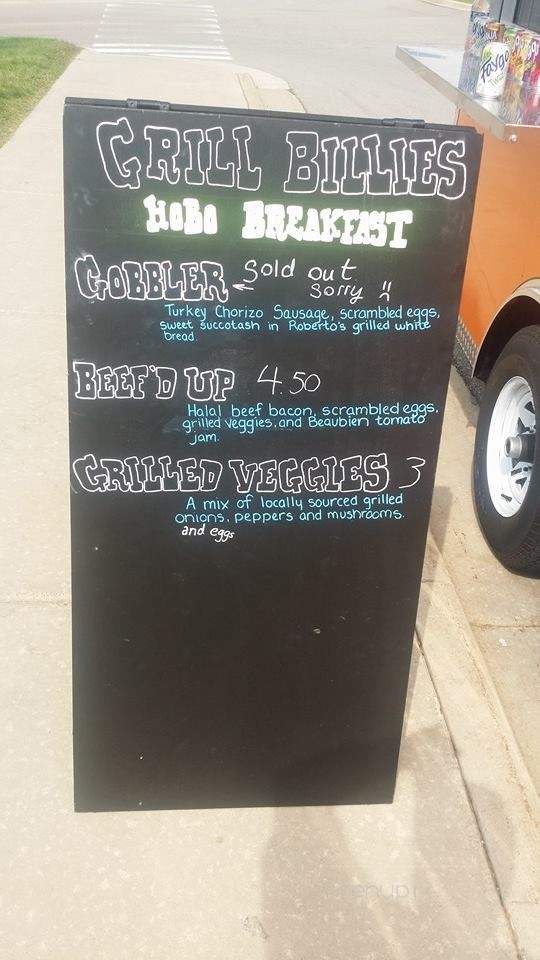 GRILL BILLIES
HOBO BREAKFAST
GOBBLER Sold out
Sorry !!
Turkey Chorizo Sausage, scrambled eggs,
sweet succotash in Roberto's grilled white
bread.
BEEF'D UP 4.50
Halal beef bacon, scrambled eggs,
grilled veggies, and Beaubien tomato
jam.
GRILLED VEGGIES 3
A mix of locally sourced grilled
onions, peppers and mushrooms.
and eggs
Faygo